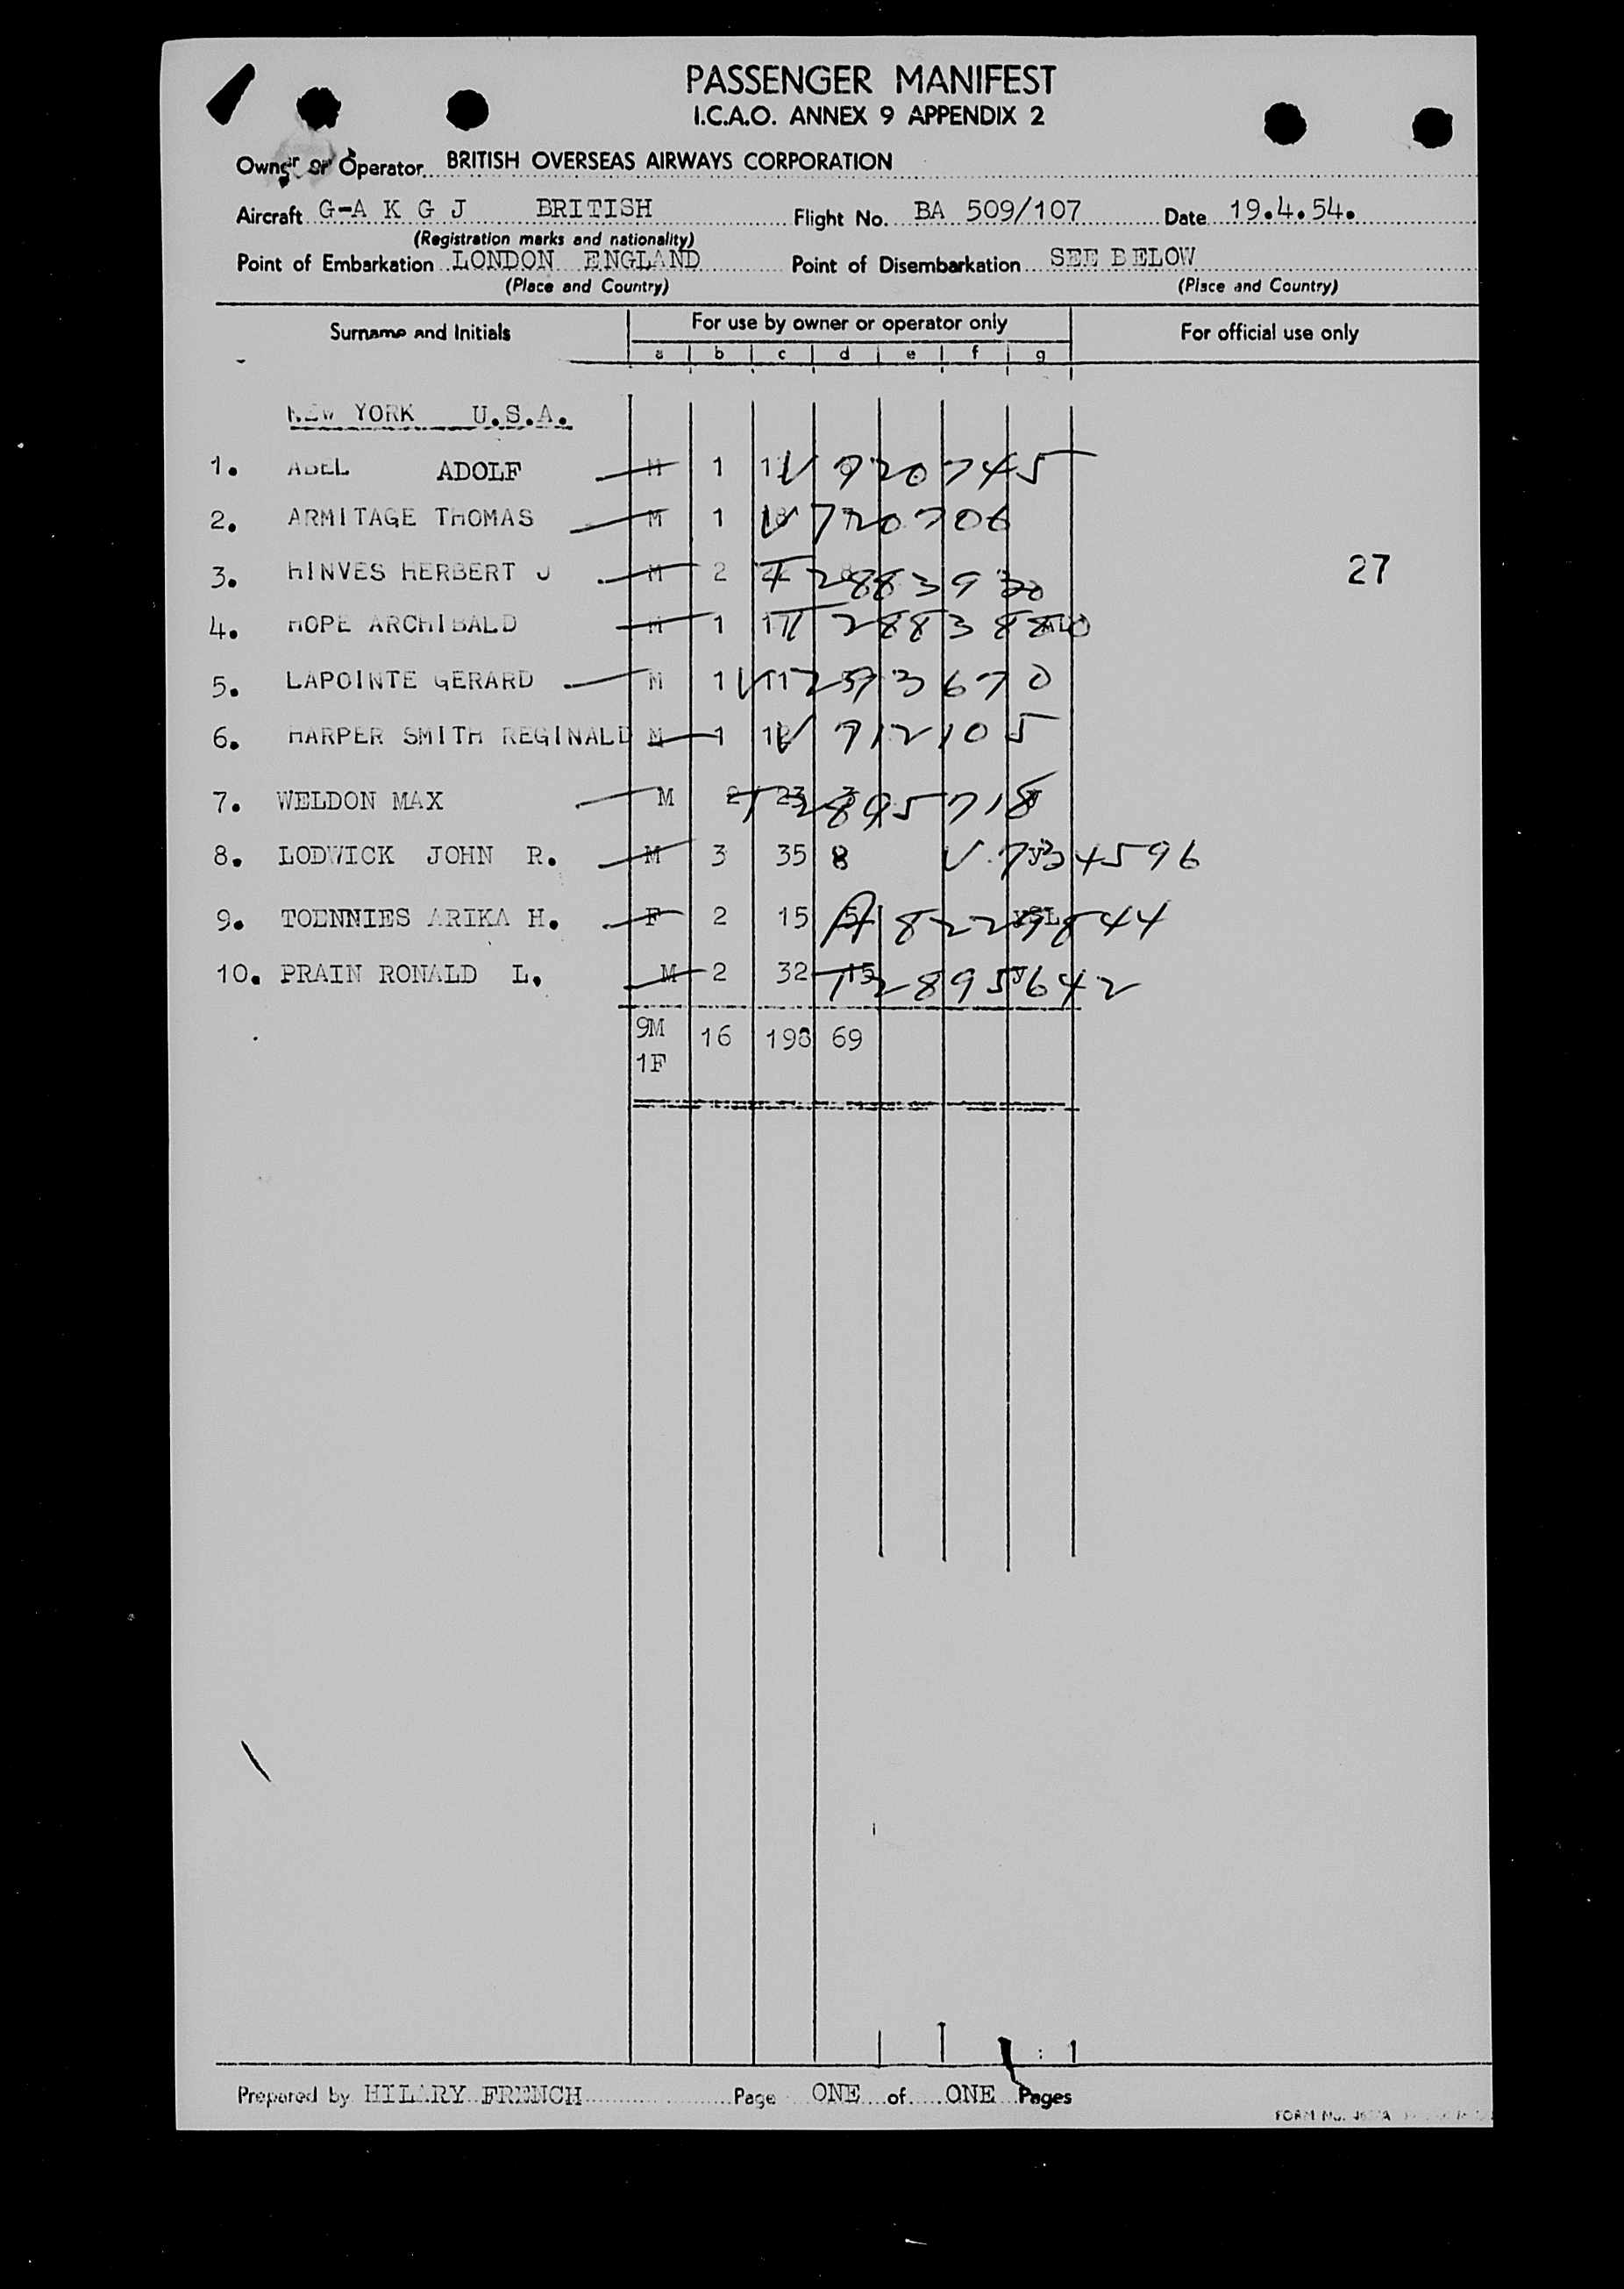 PASSENGER MANIFEST
I.C.A.O. ANNEX 9 APPENDIX 2
Owner or Operator BRITISH OVERSEAS AIRWAYS CORPORATION
Aircraft G-A K G J BRITISH Flight No. BA 509/107 Date 19.4.54.
(Registration marks and nationality)
Point of Embarkation LONDON ENGLAND Point of Disembarkation SEE BELOW
(Place and Country) (Place and Country)
Surname and Initials For use by owner or operator only For official use only
a b c d e f g
NEW YORK U.S.A.
1. ABEL ADOLF M 1 V 720745
2. ARMITAGE THOMAS M 1 V 720706
3. HINVES HERBERT J M 2 T 2883930 27
4. HOPE ARCHIBALD M 1 T 2883880
5. LAPOINTE GERARD M 1 11 V
6. HARPER SMITH REGINALD M 1 V 712105
7. WELDON MAX M 2 23 T 2895718
8. LODWICK JOHN R. M 3 35 8 V 734596
9. TOENNIES ARIKA H. F 2 15 5 A 8229844
10. PRAIN RONALD L. M 2 32 15 T 2895642
9M 16 198 69
1F
Prepared by HILARY FRENCH Page ONE of ONE Pages
FORM No.